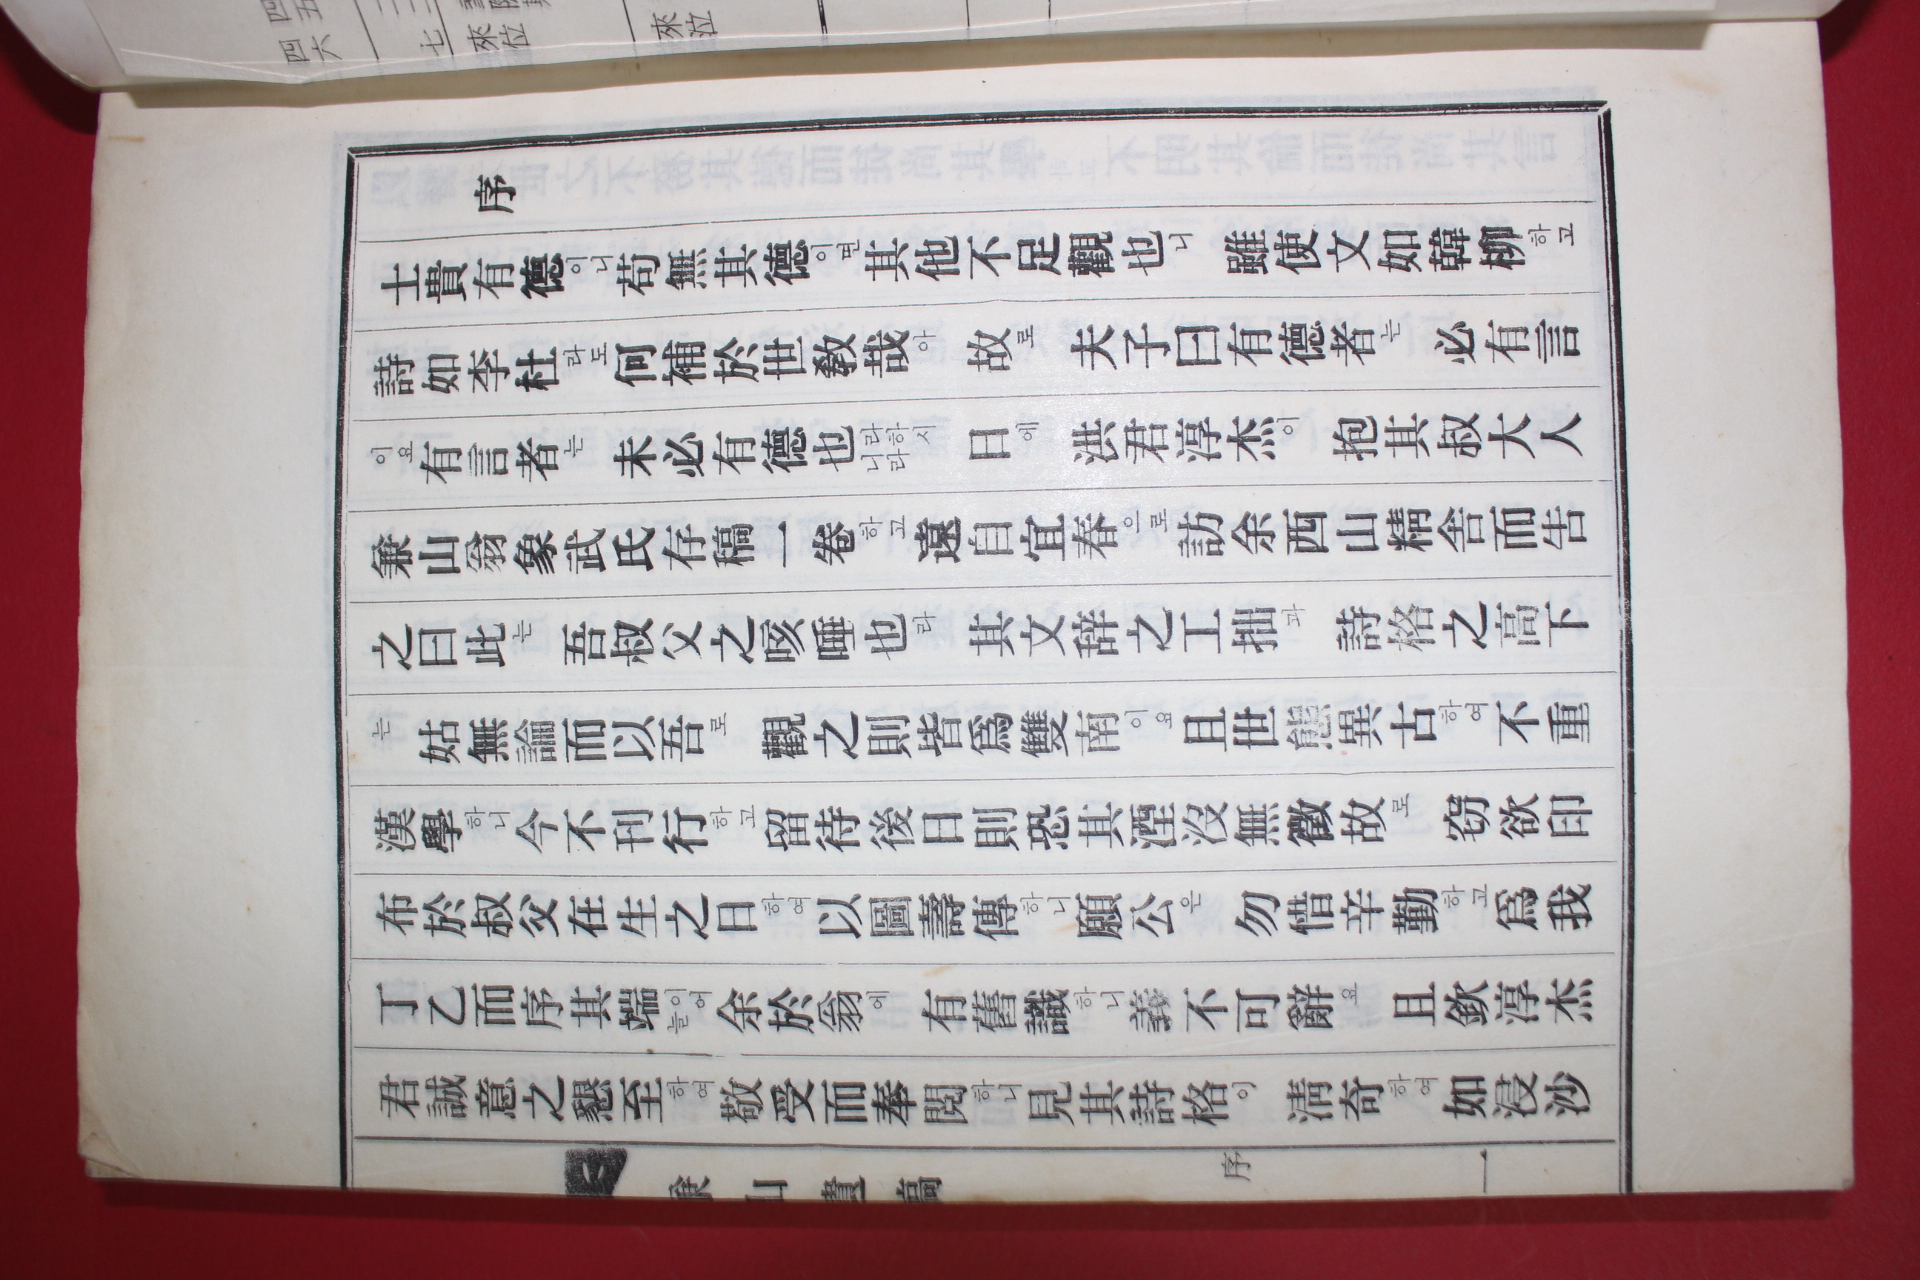 序
士貴有德이니苟無其德이면其他不足觀也니 雖使文如韓柳하고
詩如李杜라도何補於世敎哉아 故로 夫子曰有德者는 必有言
이요有言者는 未必有德也라하시니라 日에 洪君淳杰이 抱其叔大人
兼山翁象武氏存稿一卷하고遠自宜春으로訪余西山精舍而告
之曰此는 吾叔父之咳唾也라 其文辞之工拙과 詩格之高下
는 姑無論而以吾로 觀之則皆爲雙南이요且世態異古하여不重
漢學하니今不刊行하고留待後日則恐其湮沒無徵故로 窃欲印
布於叔父在生之日하여以圖壽傳하니願公은 勿惜辛勤하고爲我
丁乙而序其端이어늘余於翁에 有舊識하니義不可辭요 且欽淳杰
君誠意之懇至하여敬受而奉閱하니見其詩格이 淸奇하여如浸沙
兼山遺稿
序
一
四五
四六
七
來位
來泣